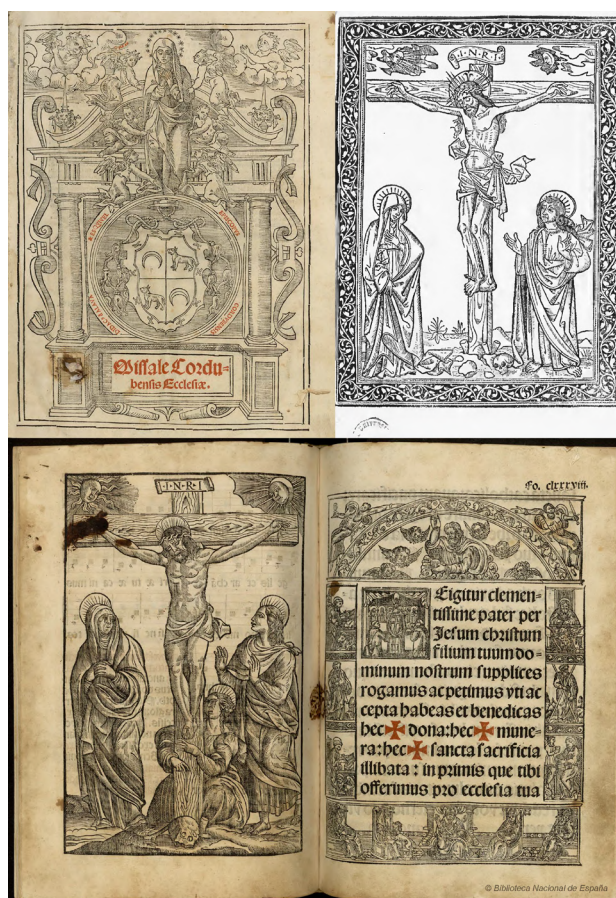 Missale Cordu-
bensis Ecclesiæ.
·I·N·R·I·
·I·N·R·I·
Fo. clxxxviii.
Eigitur clemen-
tissime pater per
Jesum christum
filium tuum do-
minum nostrum supplices
rogamus ac petimus vti ac
cepta habeas et benedicas
hec ✠ dona: hec ✠ mune-
ra: hec ✠ sancta sacrificia
illibata : in primis que tibi
offerimus pro ecclesia tua
© Biblioteca Nacional de España